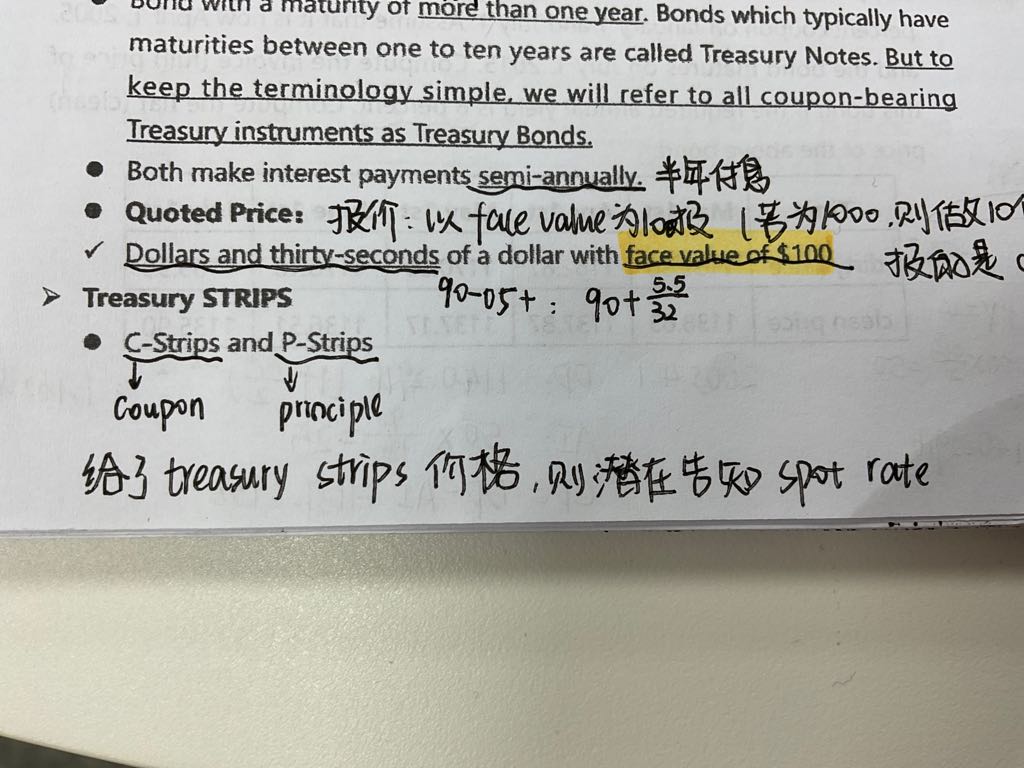 Bond with a maturity of more than one year. Bonds which typically have
maturities between one to ten years are called Treasury Notes. But to
keep the terminology simple, we will refer to all coupon-bearing
Treasury instruments as Treasury Bonds.
● Both make interest payments semi-annually. 半年付息
● Quoted Price: 报价:以 face value为100报 (若为1000,则估X10
✓ Dollars and thirty-seconds of a dollar with face value of $100 报的是
90-05+: 90+5.5/32
➤ Treasury STRIPS
● C-Strips and P-Strips
↓ ↓
Coupon principle
给了 treasury strips 价格,则潜在告知 spot rate
clean price